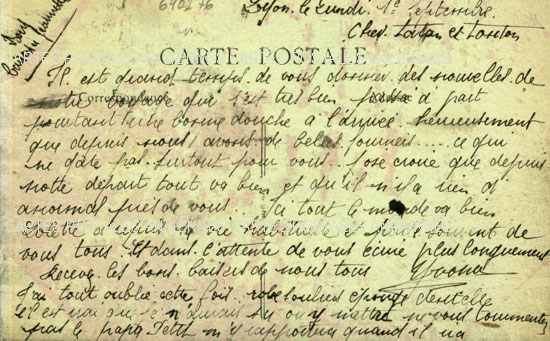 6902 76
Lyon le Lundi 1er Septembre
Cher Tatan et Tonton
CARTE POSTALE
Il est grand temps de vous donner des nouvelles de
Correspondance
notre voyage qui s'est très bien passé à part
pourtant une bonne douche à l'arrivée heureusement
que depuis nous avons de belles journées .... ce qui
ne gâte pas surtout pour vous. J'ose croire que depuis
notre départ tout va bien et qu'il n'y a rien d'
anormal près de vous... Ici tout le monde va bien
vie habituelle et souvent de
vous tous. Et dans l'attente de vous écrire plus longuement
Recevez les bons baisers de nous tous Yvonne
J'ai tout oublié cette fois. robe souliers éponge dentelle
il est vrai que je n'aurais su où y mettre
mais le papa Petit m'y rapportera quand il va